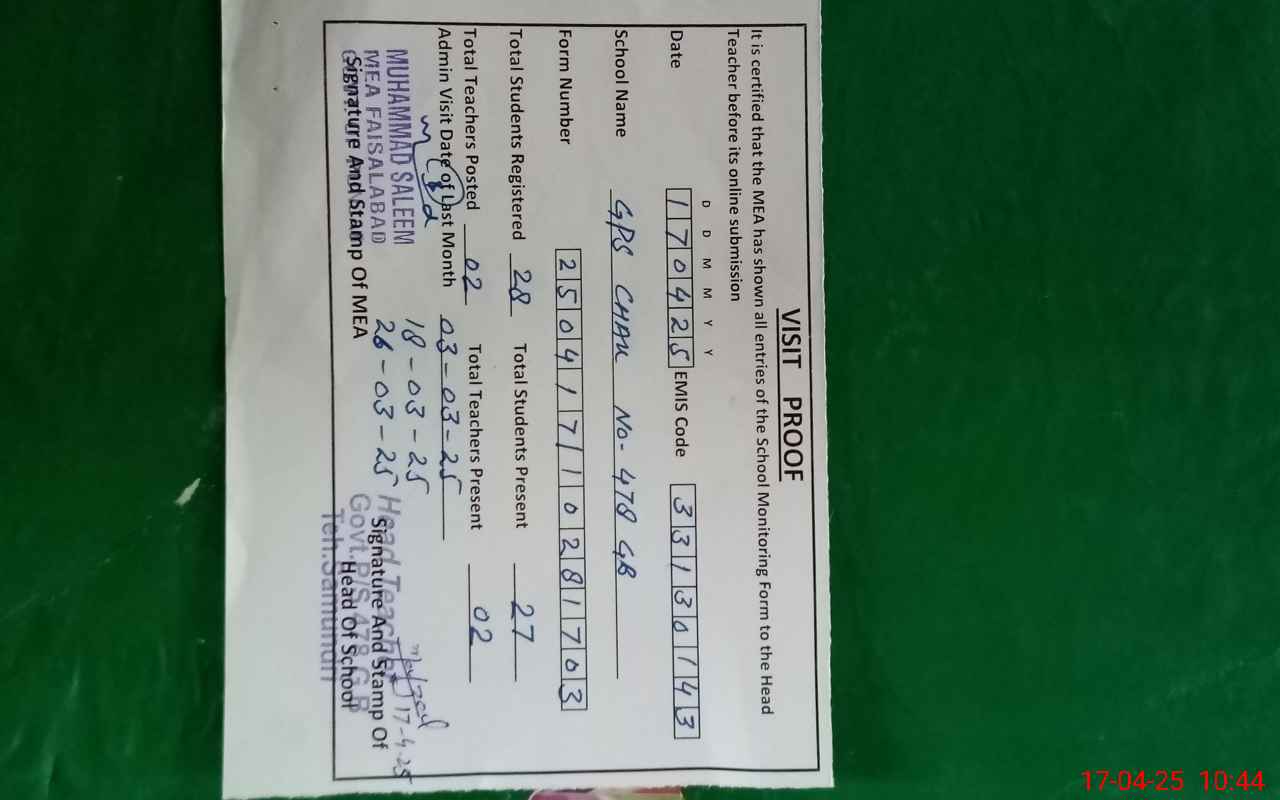 VISIT PROOF
It is certified that the MEA has shown all entries of the School Monitoring Form to the Head
Teacher before its online submission
D D M M Y Y
Date 170425 EMIS Code 33130143
School Name GPS CHAK No- 478 GB
Form Number 25041710281703
Total Students Registered 28 Total Students Present 27
Total Teachers Posted 02 Total Teachers Present 02
Admin Visit Date of Last Month 03-03-25
18-03-25
26-03-25
MUHAMMAD SALEEM
MEA FAISALABAD
Signature And Stamp Of MEA
17-4-25
Head Teacher
Govt. P/S 478 G.B
Teh. Samundri
Signature And Stamp Of
Head Of School
17-04-25 10:44